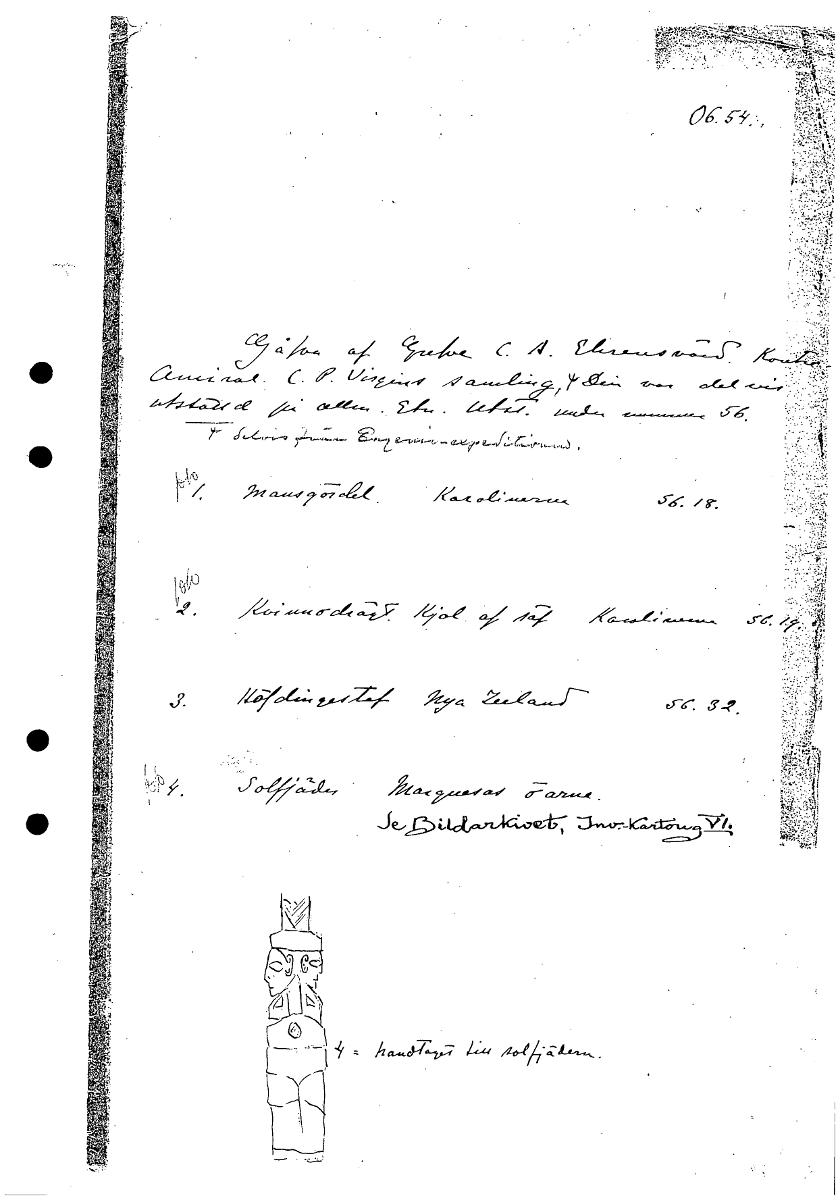 06.54.
Gåfva af Grefve C. A. Ehrensvärd. Kontre-
Amiral C. P. Virgins samling, + Den var delvis
utställd på allm. Etn. Utst. under nummer 56.
+ delvis från Eugenie-expeditionen.
foto
1. Mansgördel. Karolinerna 56.18.
foto
2. Kvinnodrägt. Kjol af säf Karolinerna 56.19.
3. Höfdingestaf Nya Zeeland 56.32.
foto 4. Solfjäder Marquesas öarne.
Se Bildarkivet, Inv.-Kartong VI.
4 = handtaget till solfjädern.